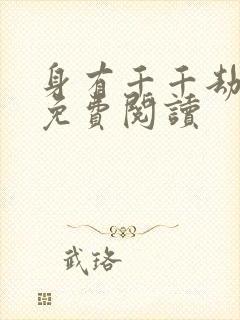 身有千千劫
免費閱讀
武珞